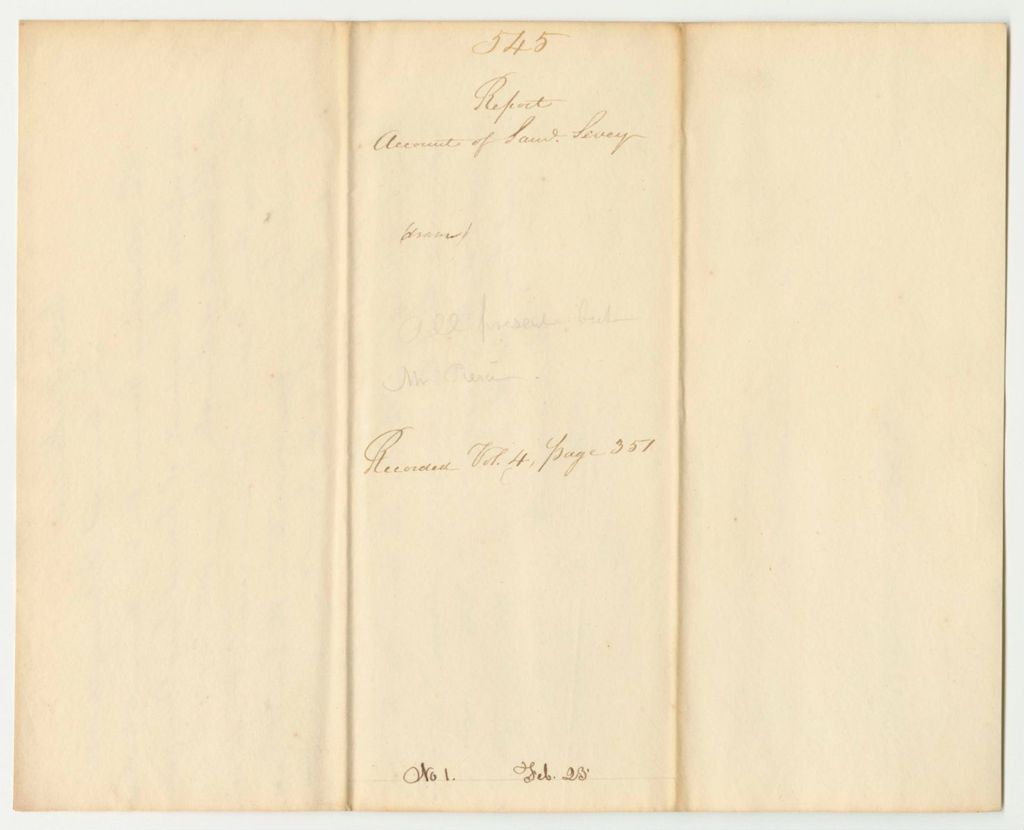 545
Report
Account of Levey
All present, but
Mr
Recorded Vol. 4, page 351
No 1. Feb. 25